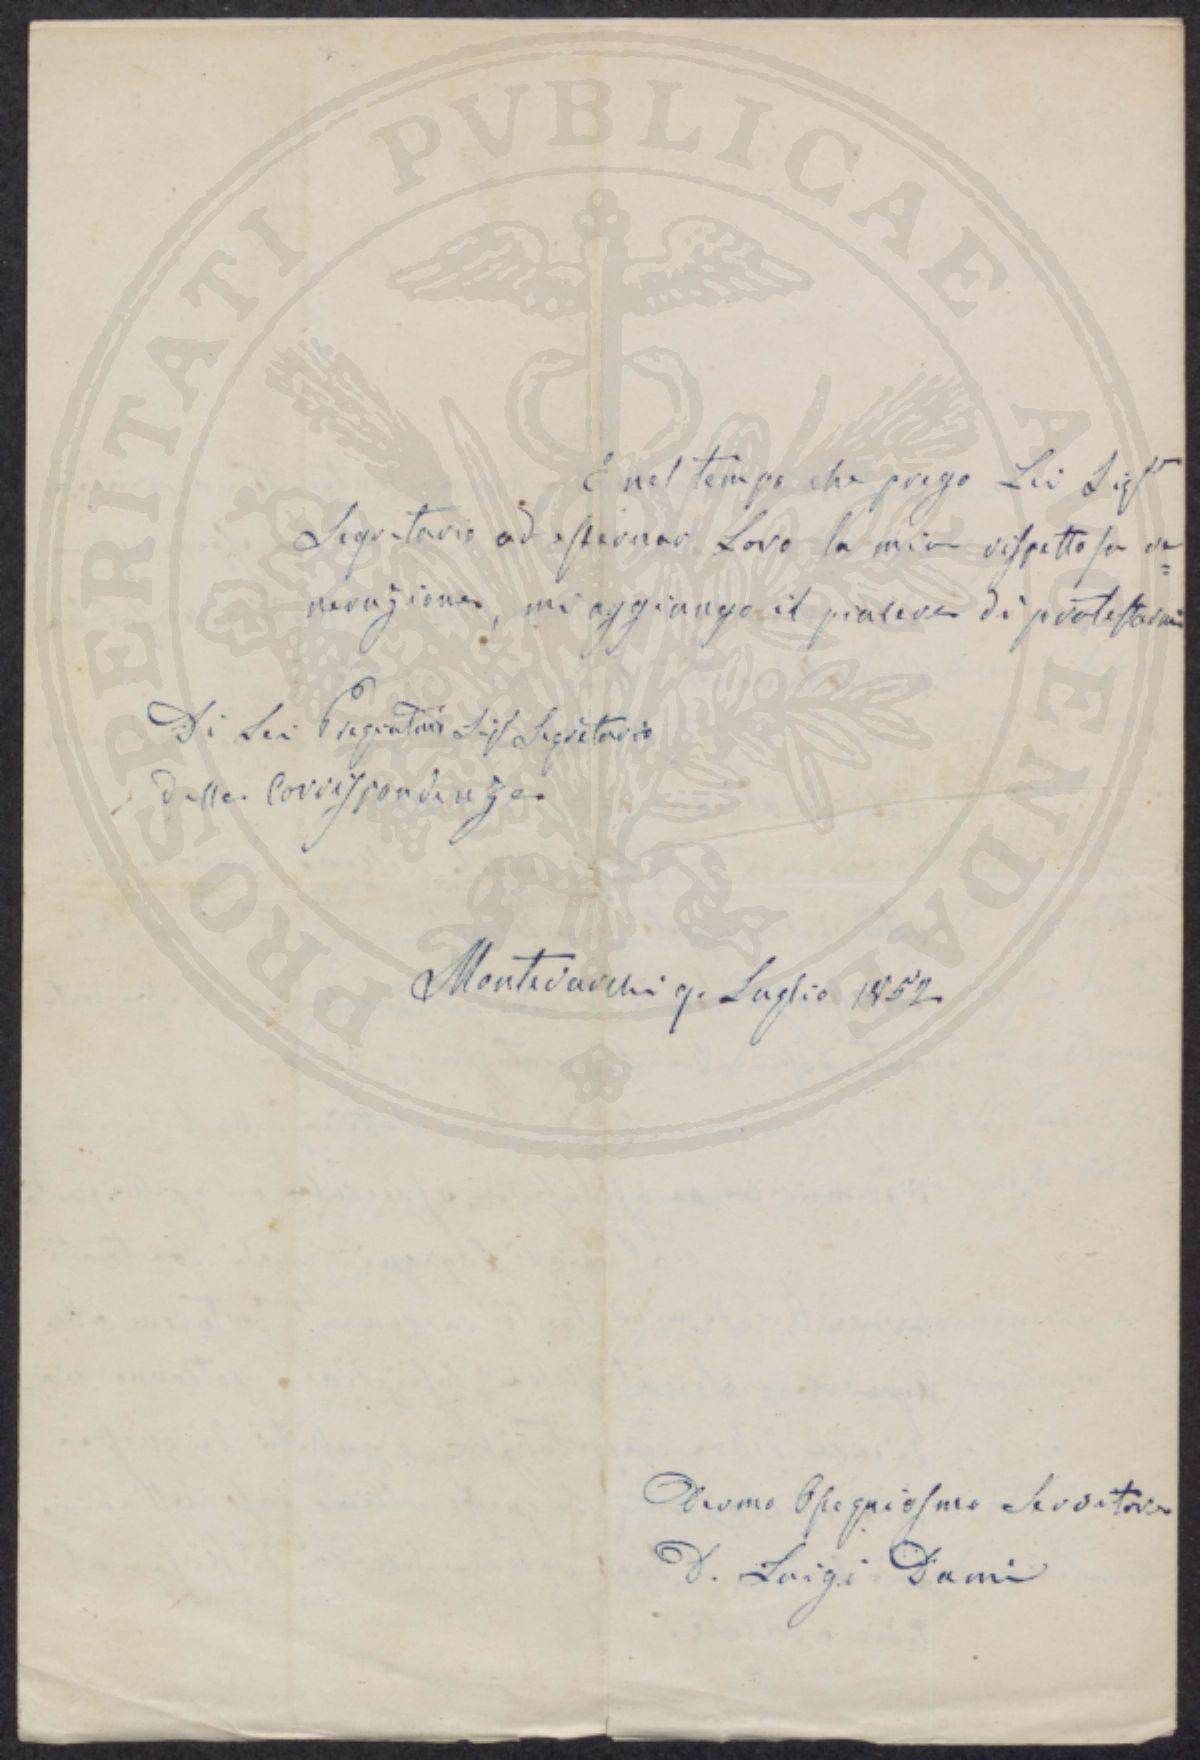 PROSPERITATI PVBLICAE AVGENDAE
E nel tempo che prego Lei Sigr
Segretario ad esternar Loro la mia rispettosa ve=
nerazione, mi aggiungo il piacere di protestarmi
Di Lei Pregiatmo Sigr Segretario
delle Corrispondenze
Montevarchi 9. Luglio 1852
Devmo Ossequiosmo Servitore
D. Luigi Dami